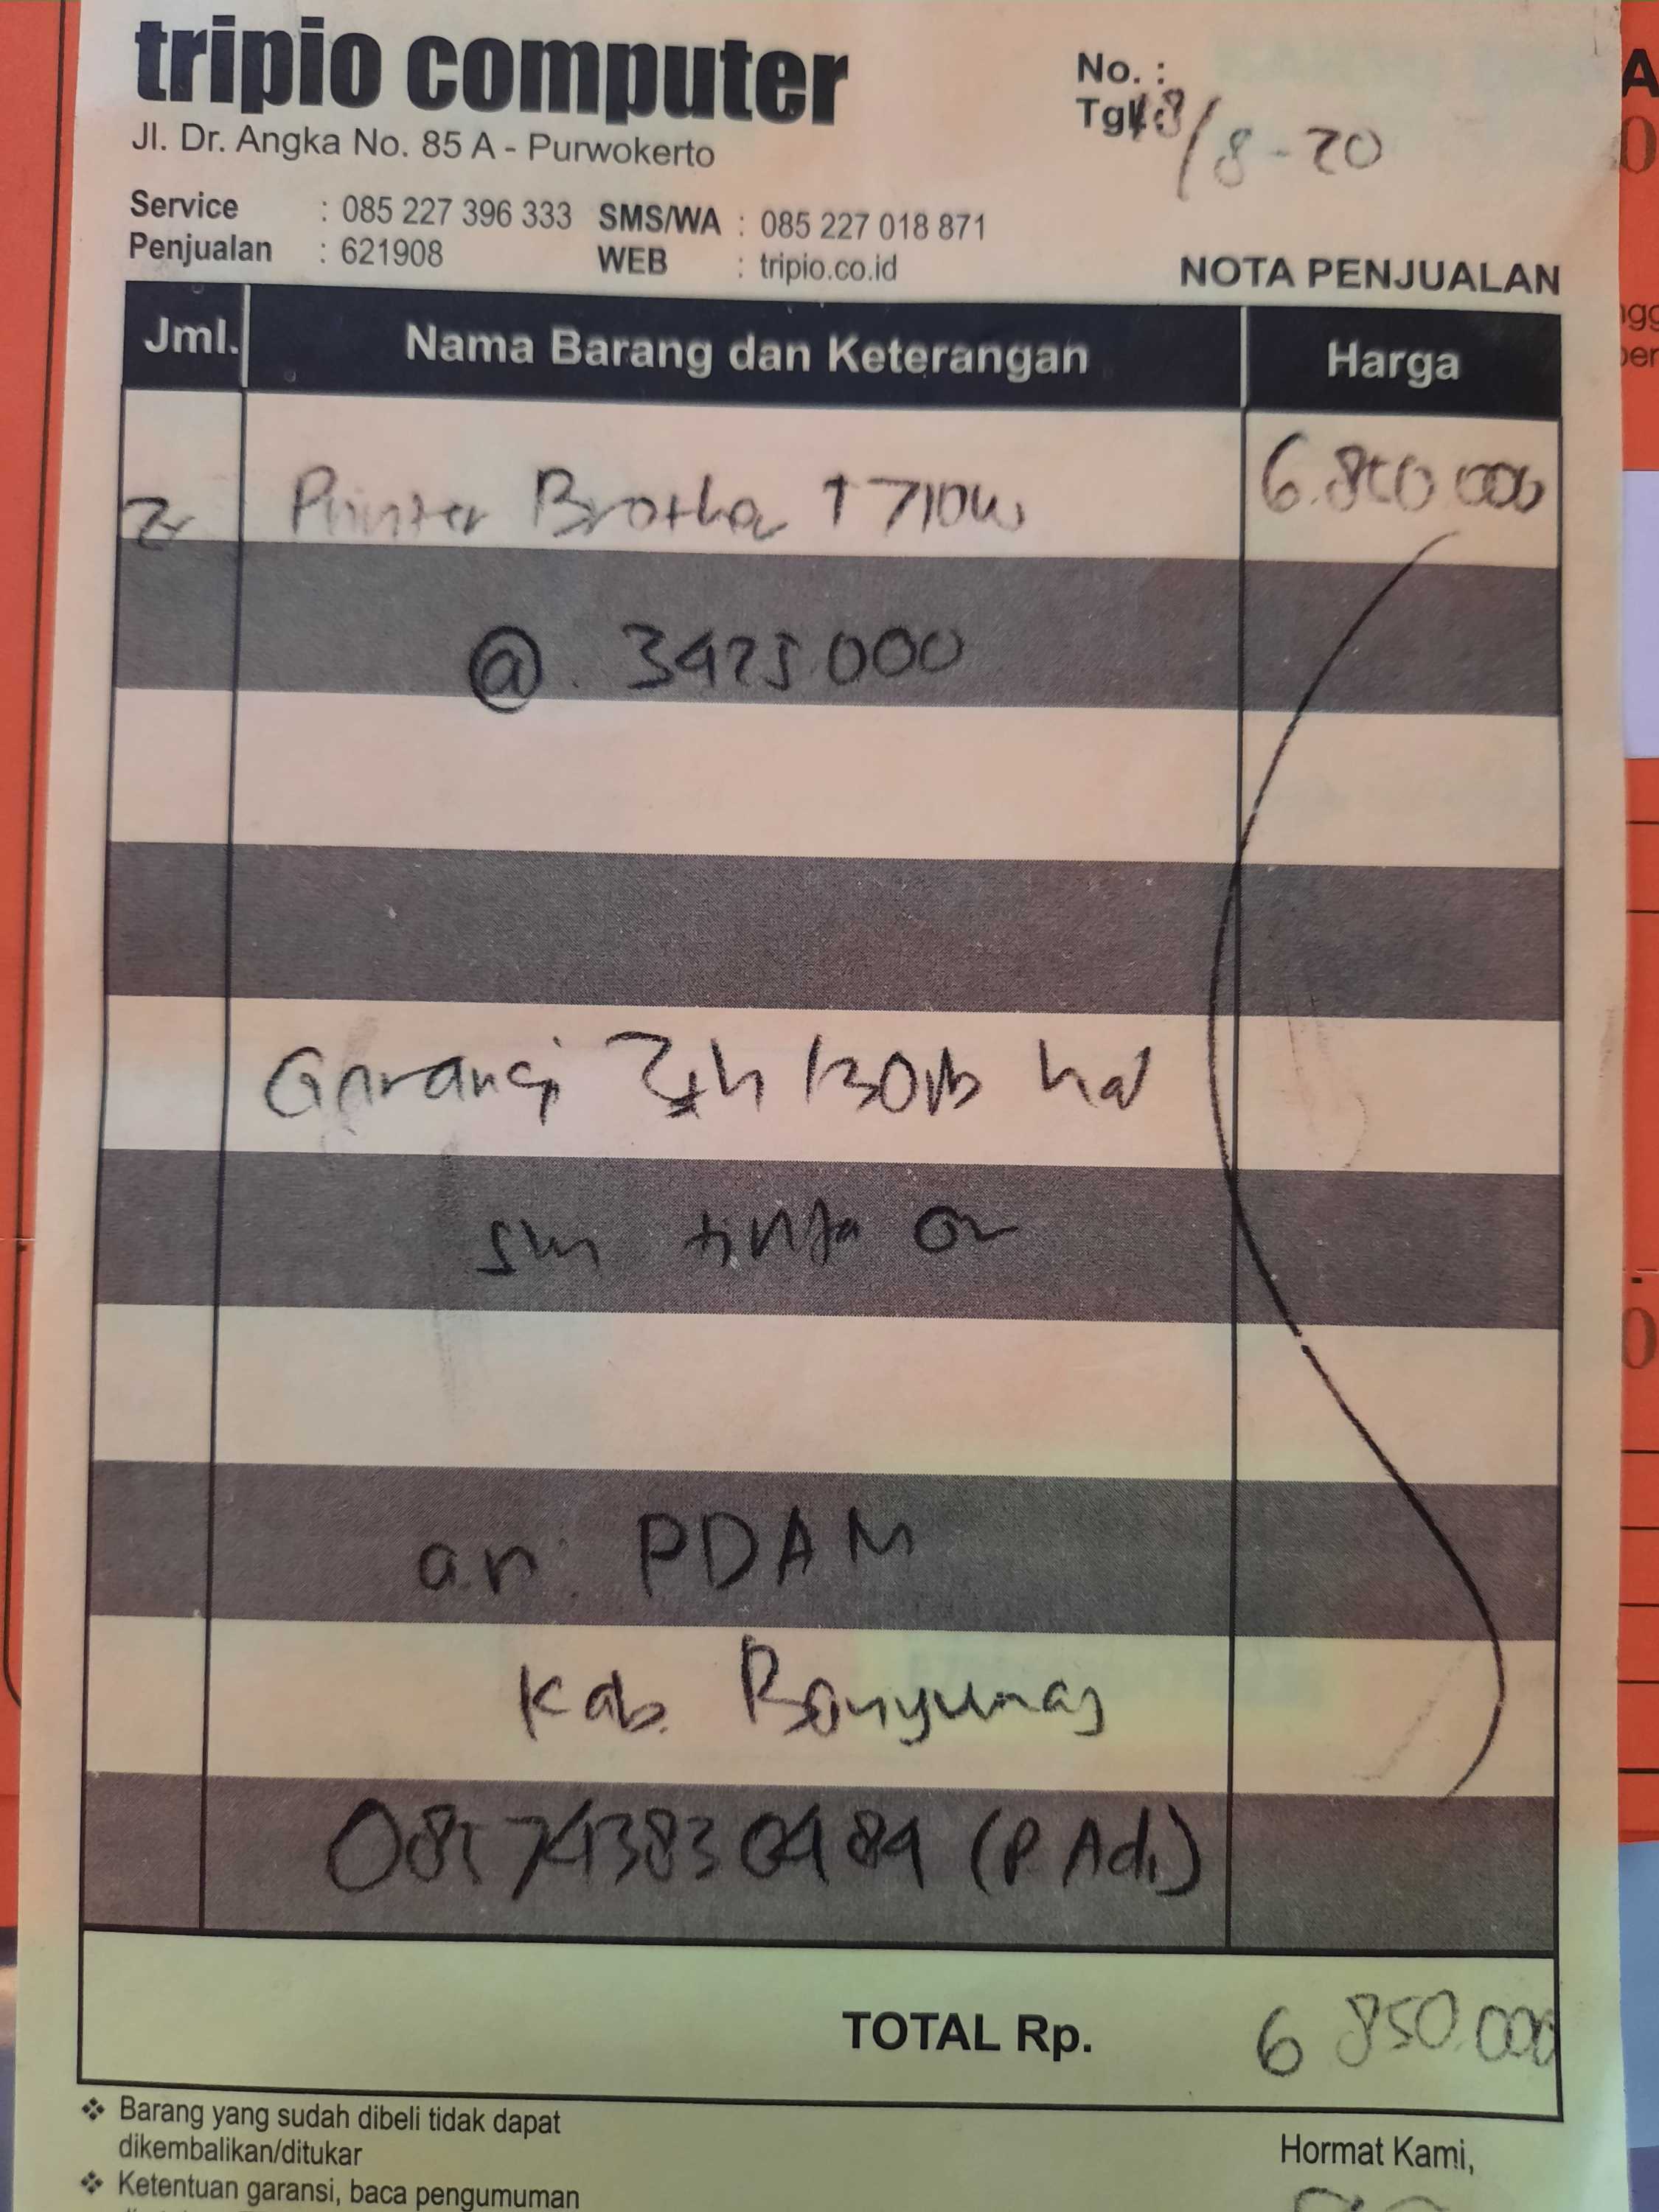 tripio computer
Jl. Dr. Angka No. 85 A - Purwokerto
No. :
Tgl. 18/8-20
Service : 085 227 396 333 SMS/WA : 085 227 018 871
Penjualan : 621908 WEB : tripio.co.id
NOTA PENJUALAN
Jml. Nama Barang dan Keterangan Harga
2 Printer Brother T710W 6.850.000
@. 3425.000
Garansi 2th
tinta
a.n. PDAM
Kab. Banyumas
085743830484 (P Adi)
TOTAL Rp. 6 850.000
❖ Barang yang sudah dibeli tidak dapat
dikembalikan/ditukar
❖ Ketentuan garansi, baca pengumuman
Hormat Kami,